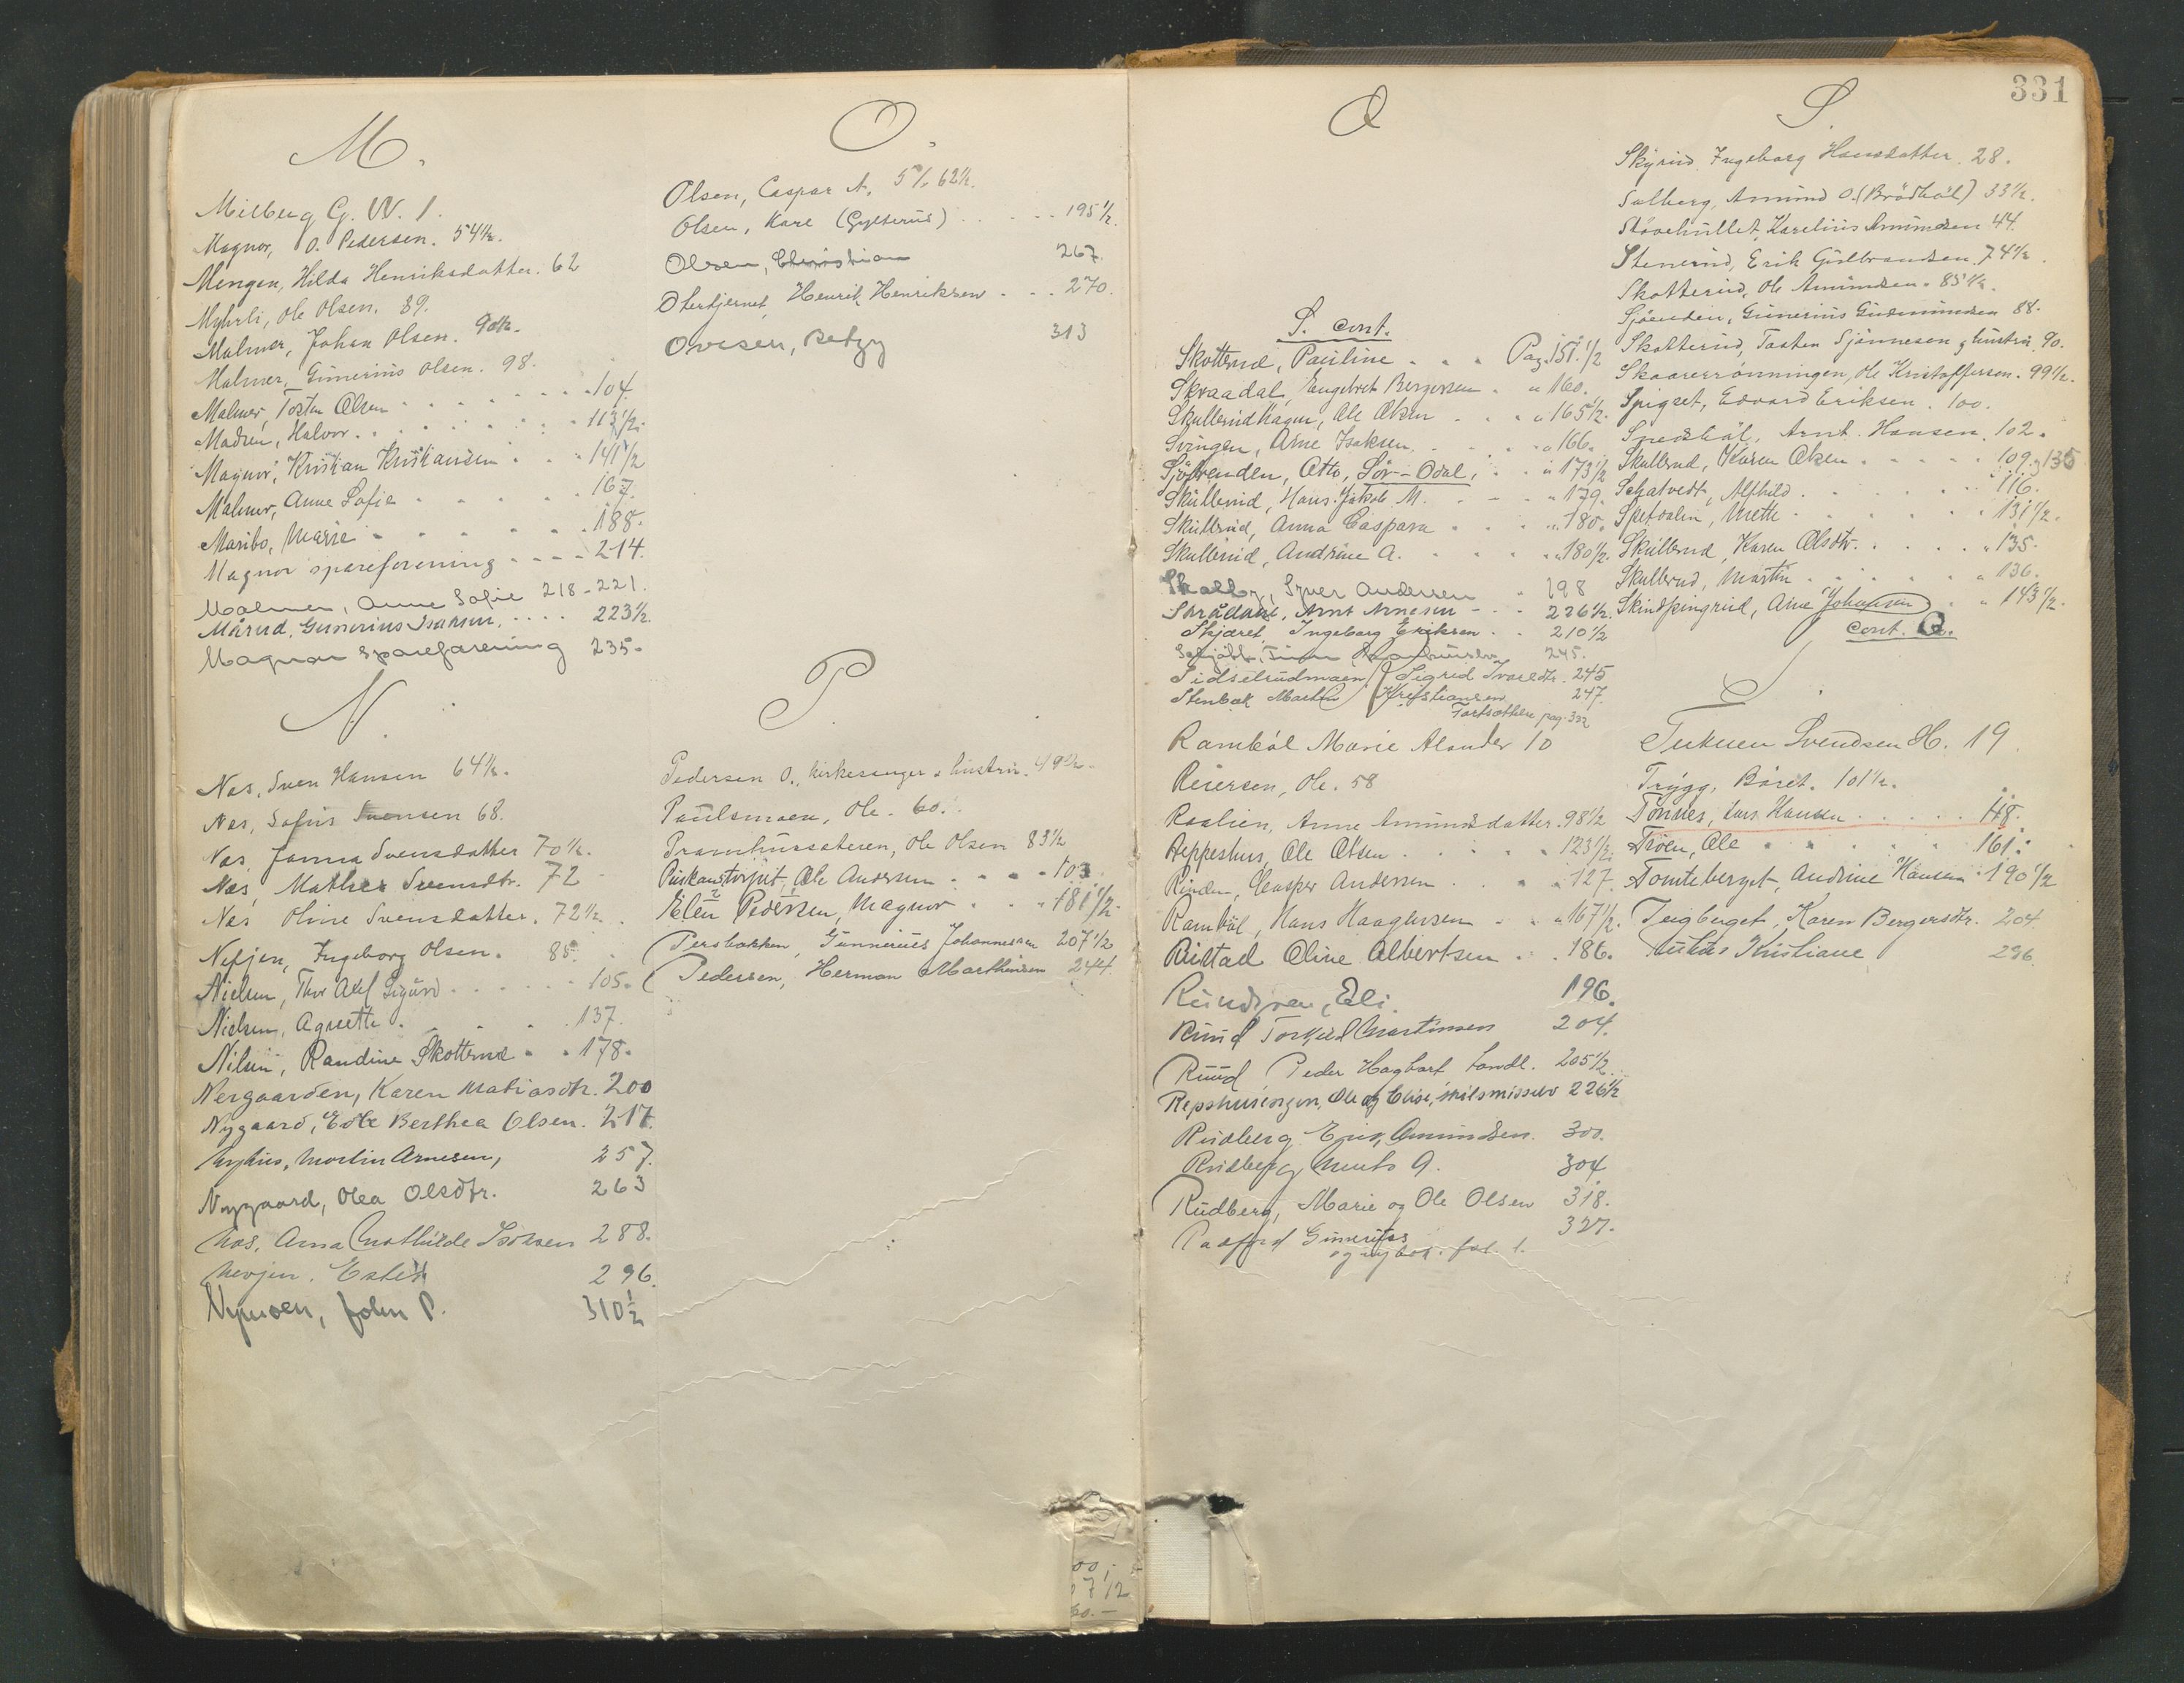 M.
Milberg G. W. 1.
Magnor, O. Pedersen. 54½.
Mengen, Hilda Henriksdatter. 62
Myhrli, Ole Olsen. 89.
Malmer, Johan Olsen. 90½.
Malmer, Gunerius Olsen. 98.
Malmer, Tosten Olsen 104.
Madsen, Halvor. 113½.
Magnor, Kristian Kristiansen 141½
Malmer, Anne Sofie 167.
Maribo, Marie 188.
Magnor spareforening 214.
Malmer, Anne Sofie 218-221.
Mårud, Gunerius Isaksen, 223½.
Magnor Spareforening 235.
N.
Nes, Sven Hansen 64½.
Nes, Sofus Svensen 68.
Nes, Janna Svensdatter 70½.
Nes, Mathea Svensdtr. 72
Nes Oline Svensdatter. 72½.
Nefjen, Ingeborg Olsen. 85.
Nielsen, Thor Axel Sigurd 105.
Nielsen, Agnette. 137.
Nilsen, Randine Skotterud 178.
Nergaarden, Karen Matiasdtr. 200
Nygaard, Edle Berthea Olsen. 217.
Myhus, Martin Arnesen, 257.
Nygaard, Olea Olsdtr. 263
Nas, Anna Mathilde Isaksen 288.
Nevjen, Ester 296.
Nymoen, John P. 310½
O.
Olsen, Caspar A. 51. 62½.
Olsen, Kare (Gylterud) 195½.
Olsen, Christian 267.
Otertjernet, Henrik Henriksen 270.
Ovesen, Betzy 313
P.
Pedersen O., kirkesanger & hustru. 49½.
Paulsmoen, Ole. 60.
Pramhussæteren, Ole Olsen 83½
Puskanstorpet, Ole Andersen 103
Elen Pedersen, Magnor 181½.
Persbakken, Gunnerius Johannessen 207½
Pedersen, Herman Marthinsen 244.
00,-
7 1/2
60.-
331
Q
S. cont.
Skotterud, Pauline Pag. 157.½
Skraadal, Engebret Bergersen " 160.
Skullerudhagen, Ole Olsen " 165½.
Svingen, Arne Isaksen " 166.
Sjøtrenden, Otto, Sør-Odal, " 173½
Skullerud, Hans Jakob M. " 179.
Skullerud, Anna Caspara " 180.
Skullerud, Andrine A. " 180½.
Skalby, Syver Andersen " 198
Skrådahl, Arnt Arnesen 226½.
Skjæret Ingeborg Eriksen 210½
245.
Sidselrudmoen, Sigrid Ivarsdtr. 245
Stenbæk Martin Kristiansen 247.
Fortsættelse pag. 332
Rambøl Marie Alander 10
Reiersen, Ole. 58
Raslien, Anne Amundsdatter. 98½
Reppeshus, Ole Olsen 123½.
Rinden, Casper Andersen 127.
Rambøl, Hans Haagensen " 167½.
Ristad Oline Albertsen 186.
Rundgren, Eli. 196.
Ruud Torkild Martinsen 204.
Ruud Peder Hagbart Landl. 205½.
Repshuseiegen, Ole og Elise, skilsmisser 226½
Rudberg Erik Amundsen. 300.
Rudberg Mats A. 304.
Rudberg, Marie og Ole Olsen 318.
Rasfjord Gunerius 327.
og ny bok. fol. 1.
S.
Skyrud, Ingeborg Hansdatter. 28.
Solberg, Amund O. (Brødbøl) 33½.
Støvehullet, Karelius Amundsen 44.
Stenerud, Erik Gulbrandsen. 74½.
Skotterud, Ole Amundsen. 85½.
Sjøenden, Gunerius Gudmundsen 88.
Skotterud, Tosten Sjønnesen g hustru. 90.
Skaarerrønningen, Ole Kristoffersen. 99½.
Spigset, Edvard Eriksen. 100.
Smedsbøl, Arnt. Hansen. 102.
Skullerud, Karen Olsen 109. g 135
Schatvedt, Alfhild. 116.
Spetalen, Mette 131½.
Skullerud, Karen Olsdtr. " 135.
Skullerud, Martin " 136.
Skindpungrud, Arne Johansen " 143½.
Cont. Q.
T.
Teknen Svendsen H. 19.
Trygg, Båret. 101½.
Tonnes, Lars. Hansen 118.
Troen, Ole 161.
Tomteberget, Andrine Hansen 190½
Teigberget, Karen Bergersdtr. 204.
Kristiane 296.